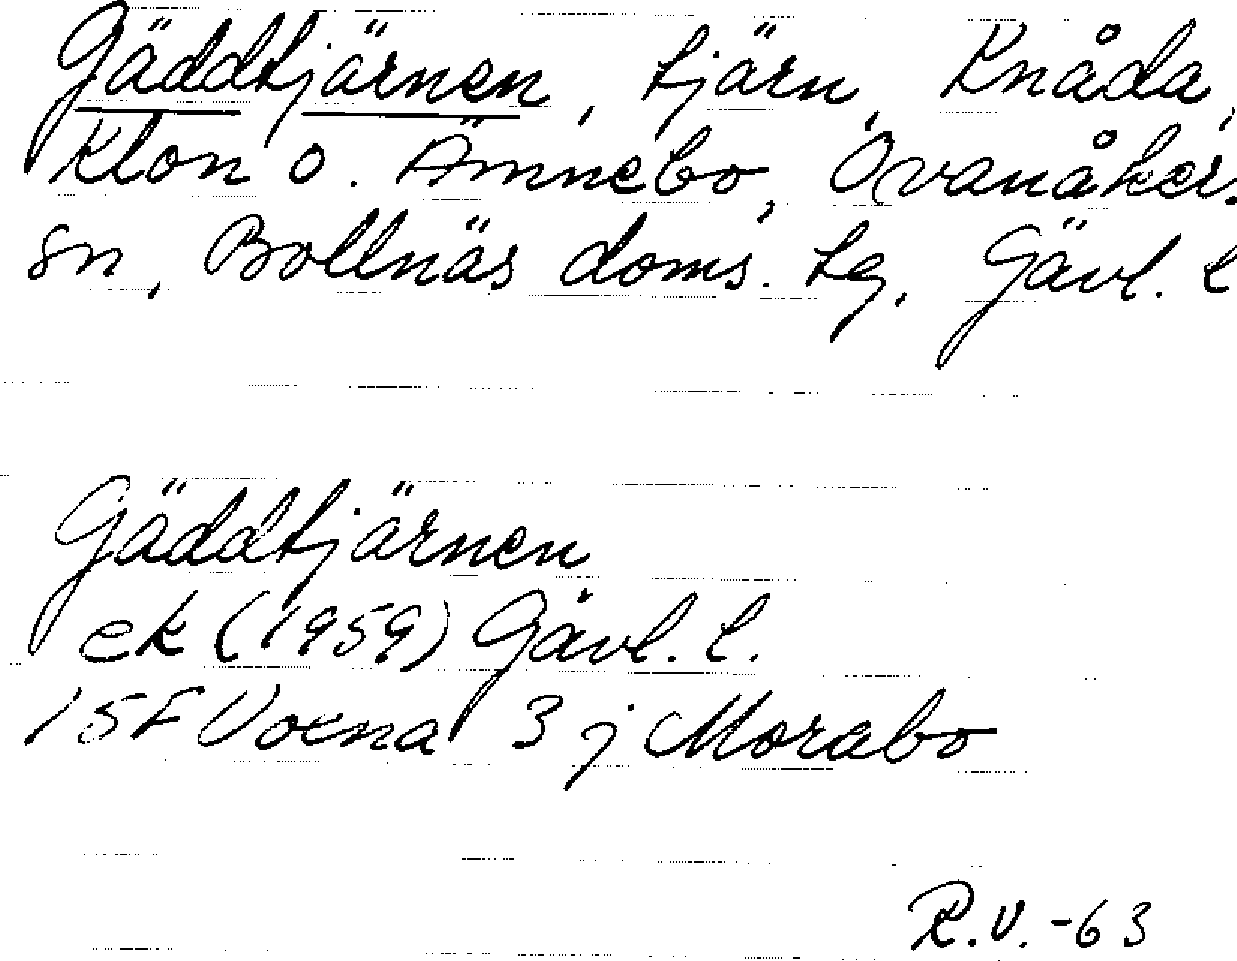 Gäddtjärnen, tjärn, Knåda,
Klon o. Ämnebo, Ovanåkers
sn, Bollnäs doms. tg, Gävl. l
Gäddtjärnen
ek (1959) Gävl. l.
15F Voxna 3 j Morabo
R.V. -63